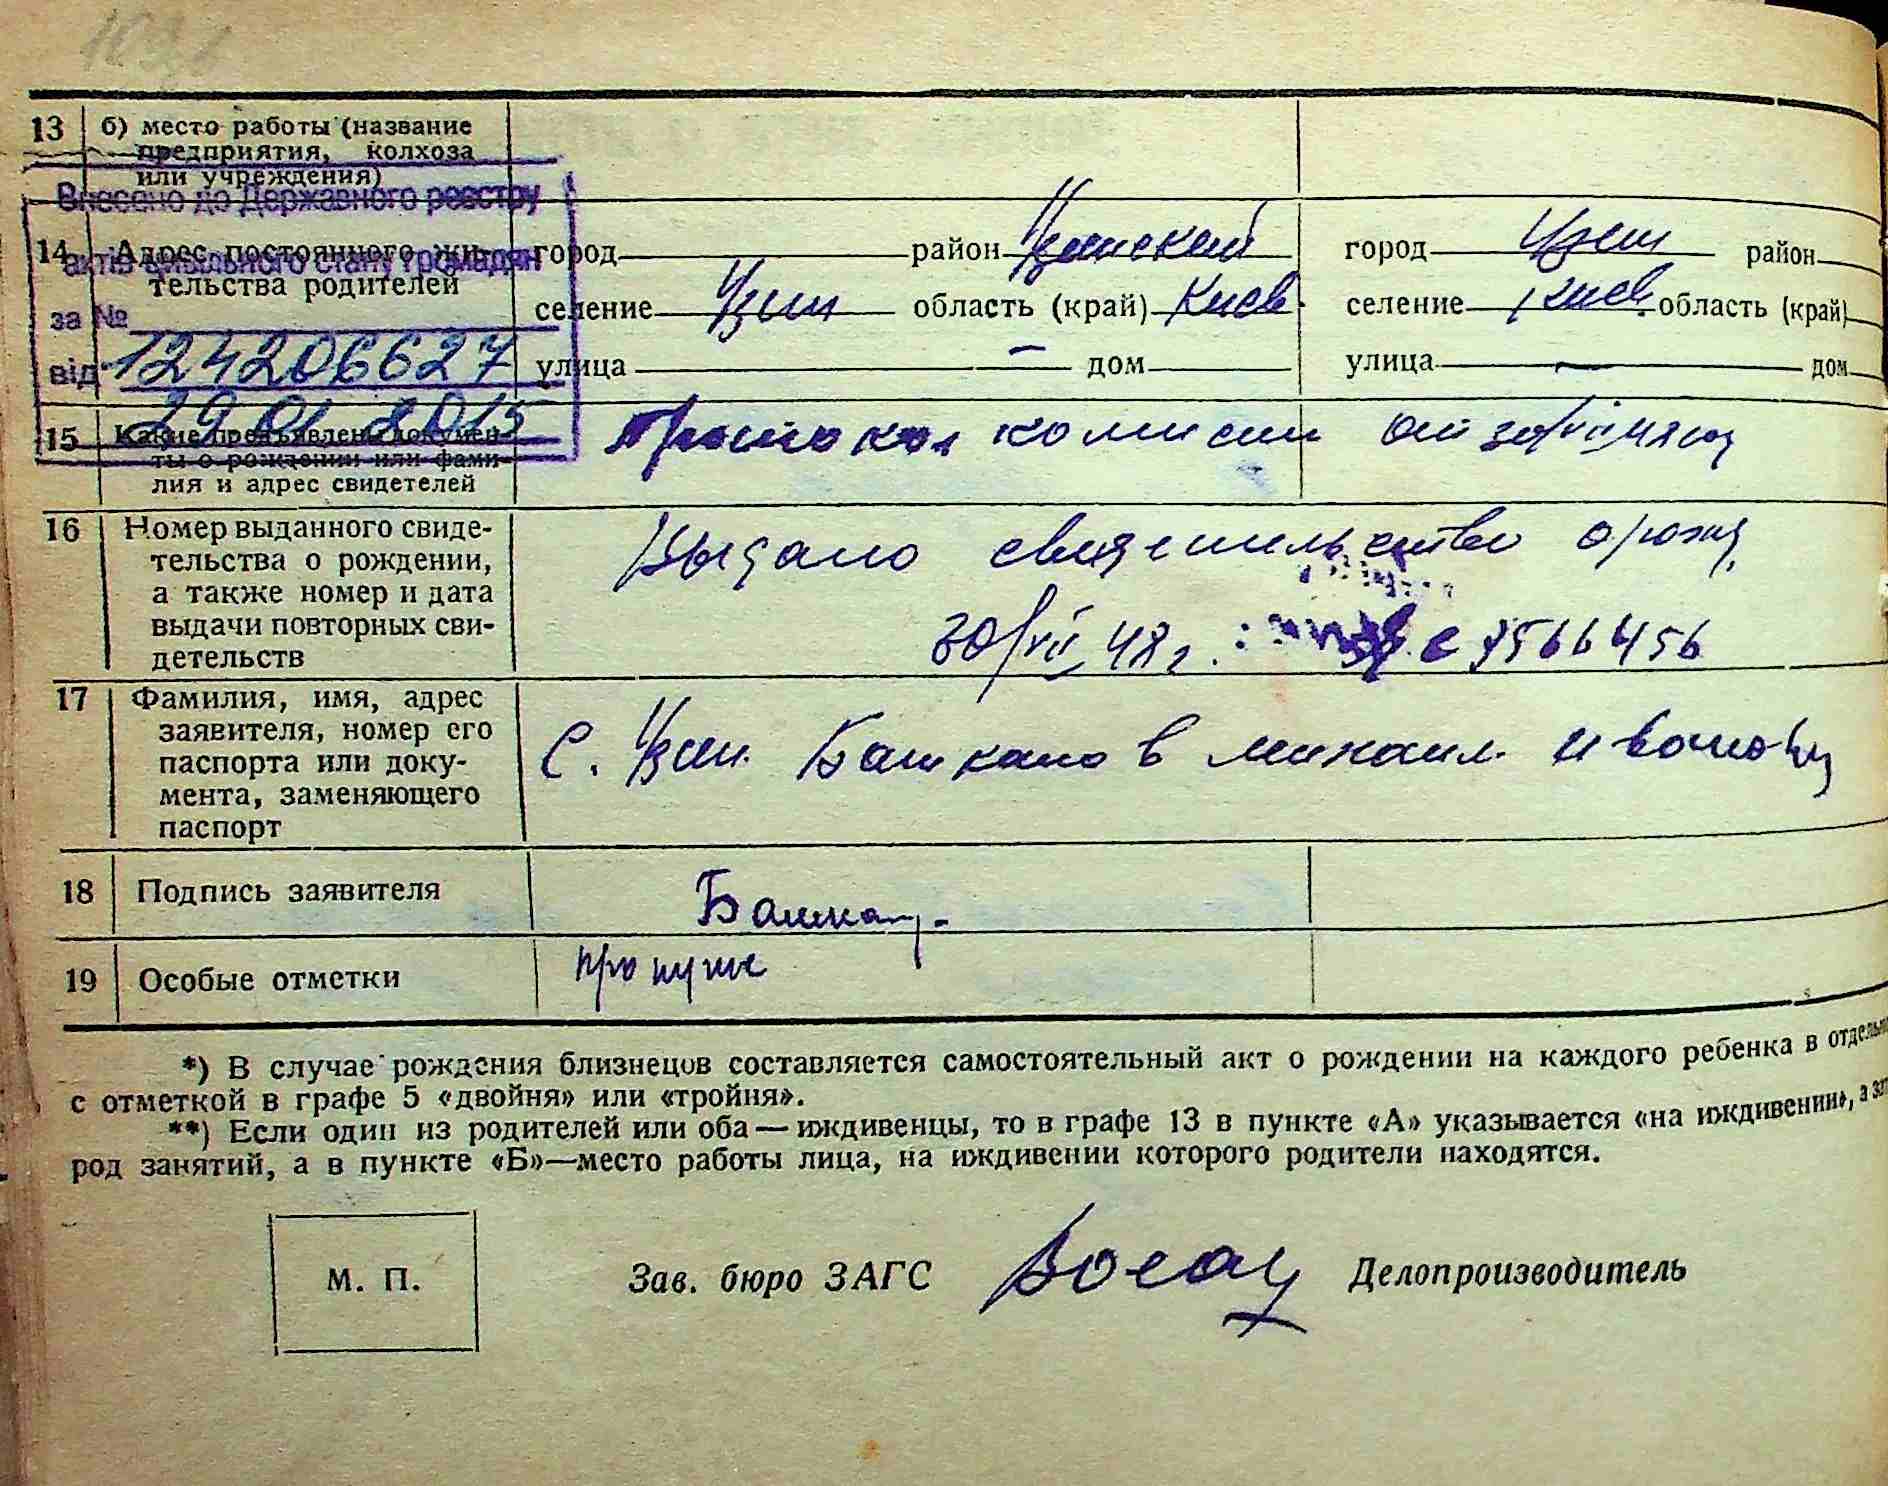 13 б) место работы (название
предприятия, колхоза
или учреждения)
Внесено до Державного реєстру
актів цивільного стану громадян
за №
від 124206627
29 01 2015
14 Адрес постоянного жи-
тельства родителей
город район Узинский
селение Узин область (край) Киев.
улица — дом
город Узин район
селение Киев. область (край)
улица — дом
15 Какие предъявлены докумен-
ты о рождении или фами-
лия и адрес свидетелей
Протокол комисии от 30/VII 48
16 Номер выданного свиде-
тельства о рождении,
а также номер и дата
выдачи повторных сви-
детельств
Выдано свидетильство о рожд.
30/VII 48 г.
17 Фамилия, имя, адрес
заявителя, номер его
паспорта или доку-
мента, заменяющего
паспорт
С. Узин. михаил
18 Подпись заявителя
19 Особые отметки
*) В случае рождения близнецов составляется самостоятельный акт о рождении на каждого ребенка в
с отметкой в графе 5 «двойня» или «тройня».
**) Если один из родителей или оба—иждивенцы, то в графе 13 в пункте «А» указывается «на иждивении», а
род занятий, а в пункте «Б»—место работы лица, на иждивении которого родители находятся.
М. П.
Зав. бюро ЗАГС Делопроизводитель